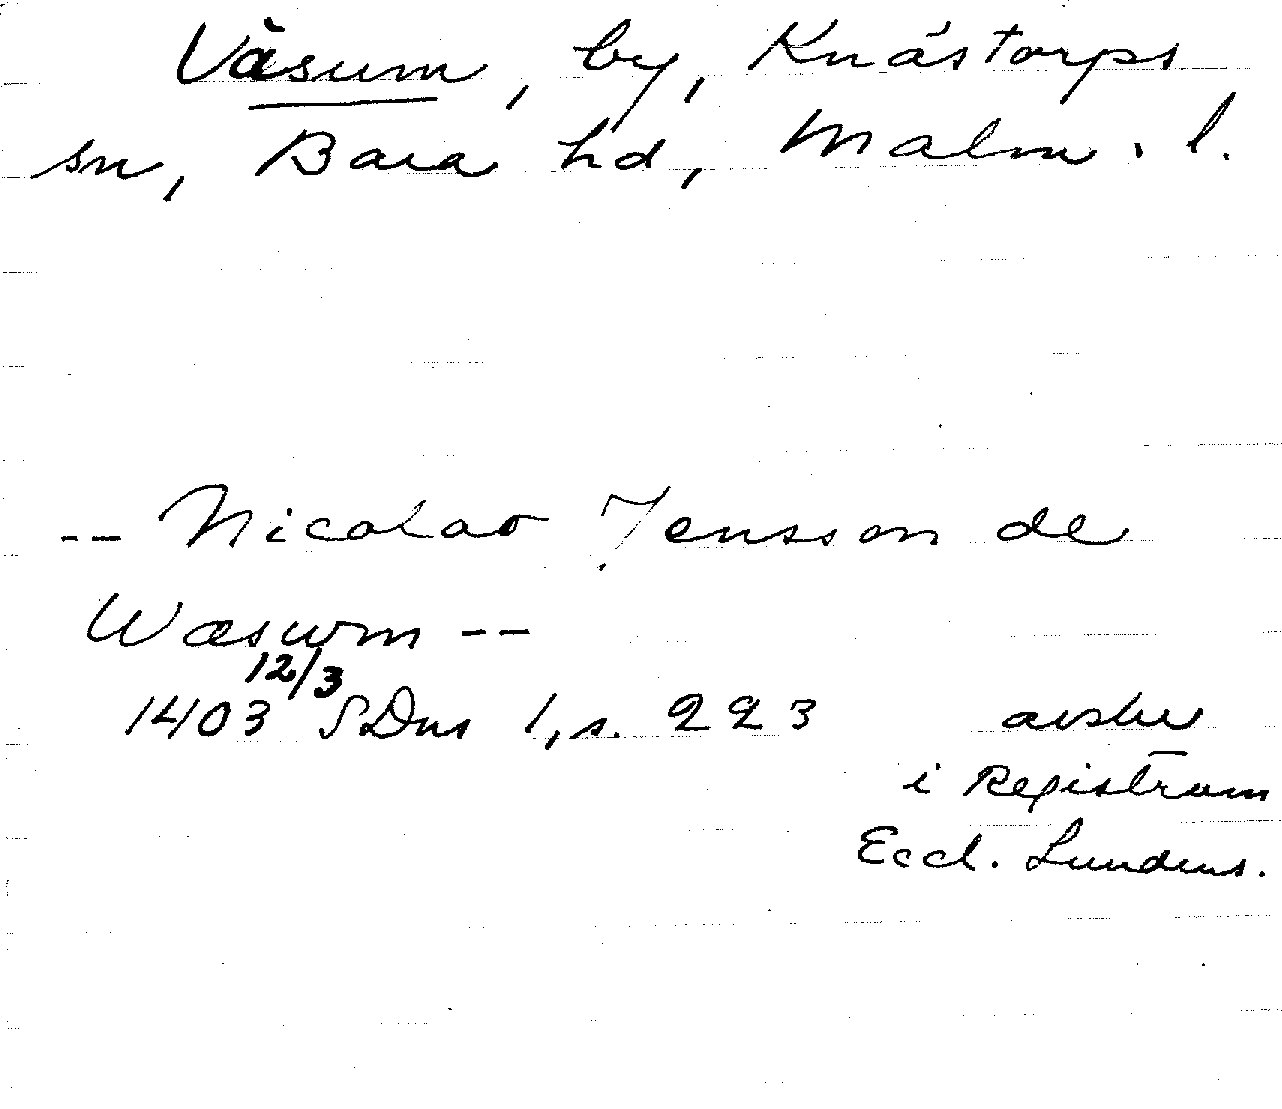 Väsum, by, Knästorps
sn, Bara hd, Malm. l.
-- Nicolao Jensson de
Wæswm --
1403 12/3 SDns 1, s. 223 avskr
i Registrum
Eccl. Lundens.